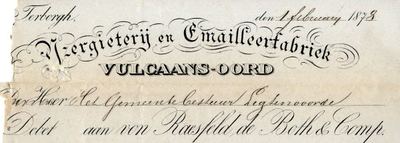 Terborgh, den 1 februarij 1873
IJzergieterij en Emailleerfabriek
VULCAANS-OORD
Den Heer Het Gemeente bestuur Ligtenvoorde
Debet aan von Raesfeld de Both & Comp.